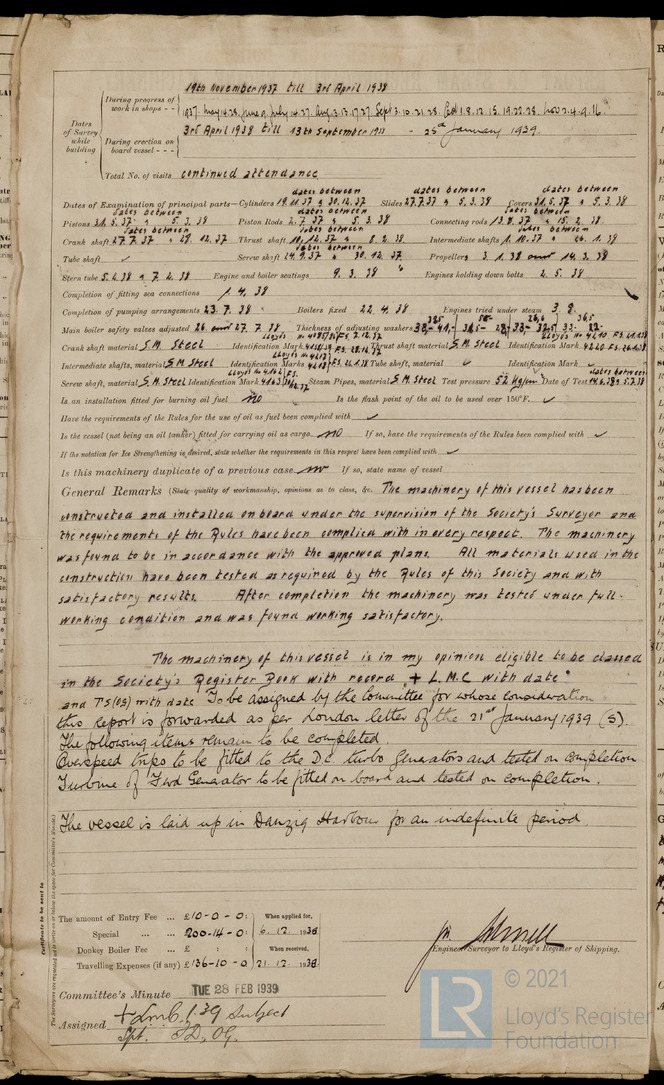 19th November 1937 till 3rd April 1938
During progress of work in shops - -
3rd April 1938 till 13th September - 25th January 1939.
Dates of Survey while building
During erection on board vessel - - -
Total No. of visits continued attendance
dates between dates between dates between
Dates of Examination of principal parts—Cylinders 19.11.37 & 30.12.37 Slides 27.7.37 & 5.3.38 Covers 31.5.37 & 5.3.38
dates between dates between dates between
Pistons 31.5.37 & 5.3.38 Piston Rods 2.7.37 & 5.3.38 Connecting rods 13.8.37 & 15.2.38
dates between dates between dates between
Crank shaft 27.7.37 & 29.12.37 Thrust shaft 10.12.37 & 8.2.38 Intermediate shafts 1.10.37 & 24.1.38
dates between
Tube shaft ✓ Screw shaft 24.9.37 & 30.12.37 Propellers 3.1.38 and 14.3.38
Stern tube 5.2.38 & 7.2.38 Engine and boiler seatings 9.3.38 Engines holding down bolts 2.5.38
Completion of fitting sea connections 1.4.38
Completion of pumping arrangements 23.7.38 Boilers fixed 22.4.38 Engines tried under steam 3.8.
Main boiler safety valves adjusted 26. and 27.7.38 Thickness of adjusting washers
Crank shaft material S.M. Steel Identification Mark Thrust shaft material S.M. Steel Identification Mark 4220 F.S.
Intermediate shafts, material S.M. Steel Identification Marks Tube shaft, material ✓ Identification Mark ✓
Screw shaft, material S.M. Steel Identification Mark Steam Pipes, material S.M. Steel Test pressure 52 kg/cm² Date of Test dates between
Is an installation fitted for burning oil fuel no Is the flash point of the oil to be used over 150°F. ✓
Have the requirements of the Rules for the use of oil as fuel been complied with ✓
Is the vessel (not being an oil tanker) fitted for carrying oil as cargo no If so, have the requirements of the Rules been complied with ✓
If the notation for Ice Strengthening is desired, state whether the requirements in this respect have been complied with ✓
Is this machinery duplicate of a previous case no If so, state name of vessel
General Remarks (State quality of workmanship, opinions as to class, &c. The machinery of this vessel has been
constructed and installed on board under the supervision of the Society's Surveyor and
the requirements of the Rules have been complied with in every respect. The machinery
was found to be in accordance with the approved plans. All materials used in the
construction have been tested as required by the Rules of this Society and with
satisfactory results. After completion the machinery was tested under full-
working condition and was found working satisfactory.
The machinery of this vessel is in my opinion eligible to be classed
in the Society's Register Book with record + L.M.C with date
and TS(OG) with date To be assigned by the Committee for whose consideration
this Report is forwarded as per London letter of the 21st January 1939 (S).
The following items remain to be completed.
Overspeed trips to be fitted to the Dc turbo Generators and tested on completion
Turbine of Fwd Generator to be fitted on board and tested on completion.
The vessel is laid up in Danzig Harbour for an indefinite period.
Certificate to be sent to
(The Surveyors are requested not to write on or below the space for Committee's Minute.)
The amount of Entry Fee ... £10-0-0: When applied for,
Special ... ... 200-14-0: 6.12.1938
Donkey Boiler Fee ... £ : : When received,
Travelling Expenses (if any) £136-10-0 21.12.1938
Engineer Surveyor to Lloyd's Register of Shipping.
Committee's Minute TUE 28 FEB 1939
Assigned + LMC 1.39 Subject
Spt. TD, OG.
© 2021
LR
Lloyd's Register
Foundation